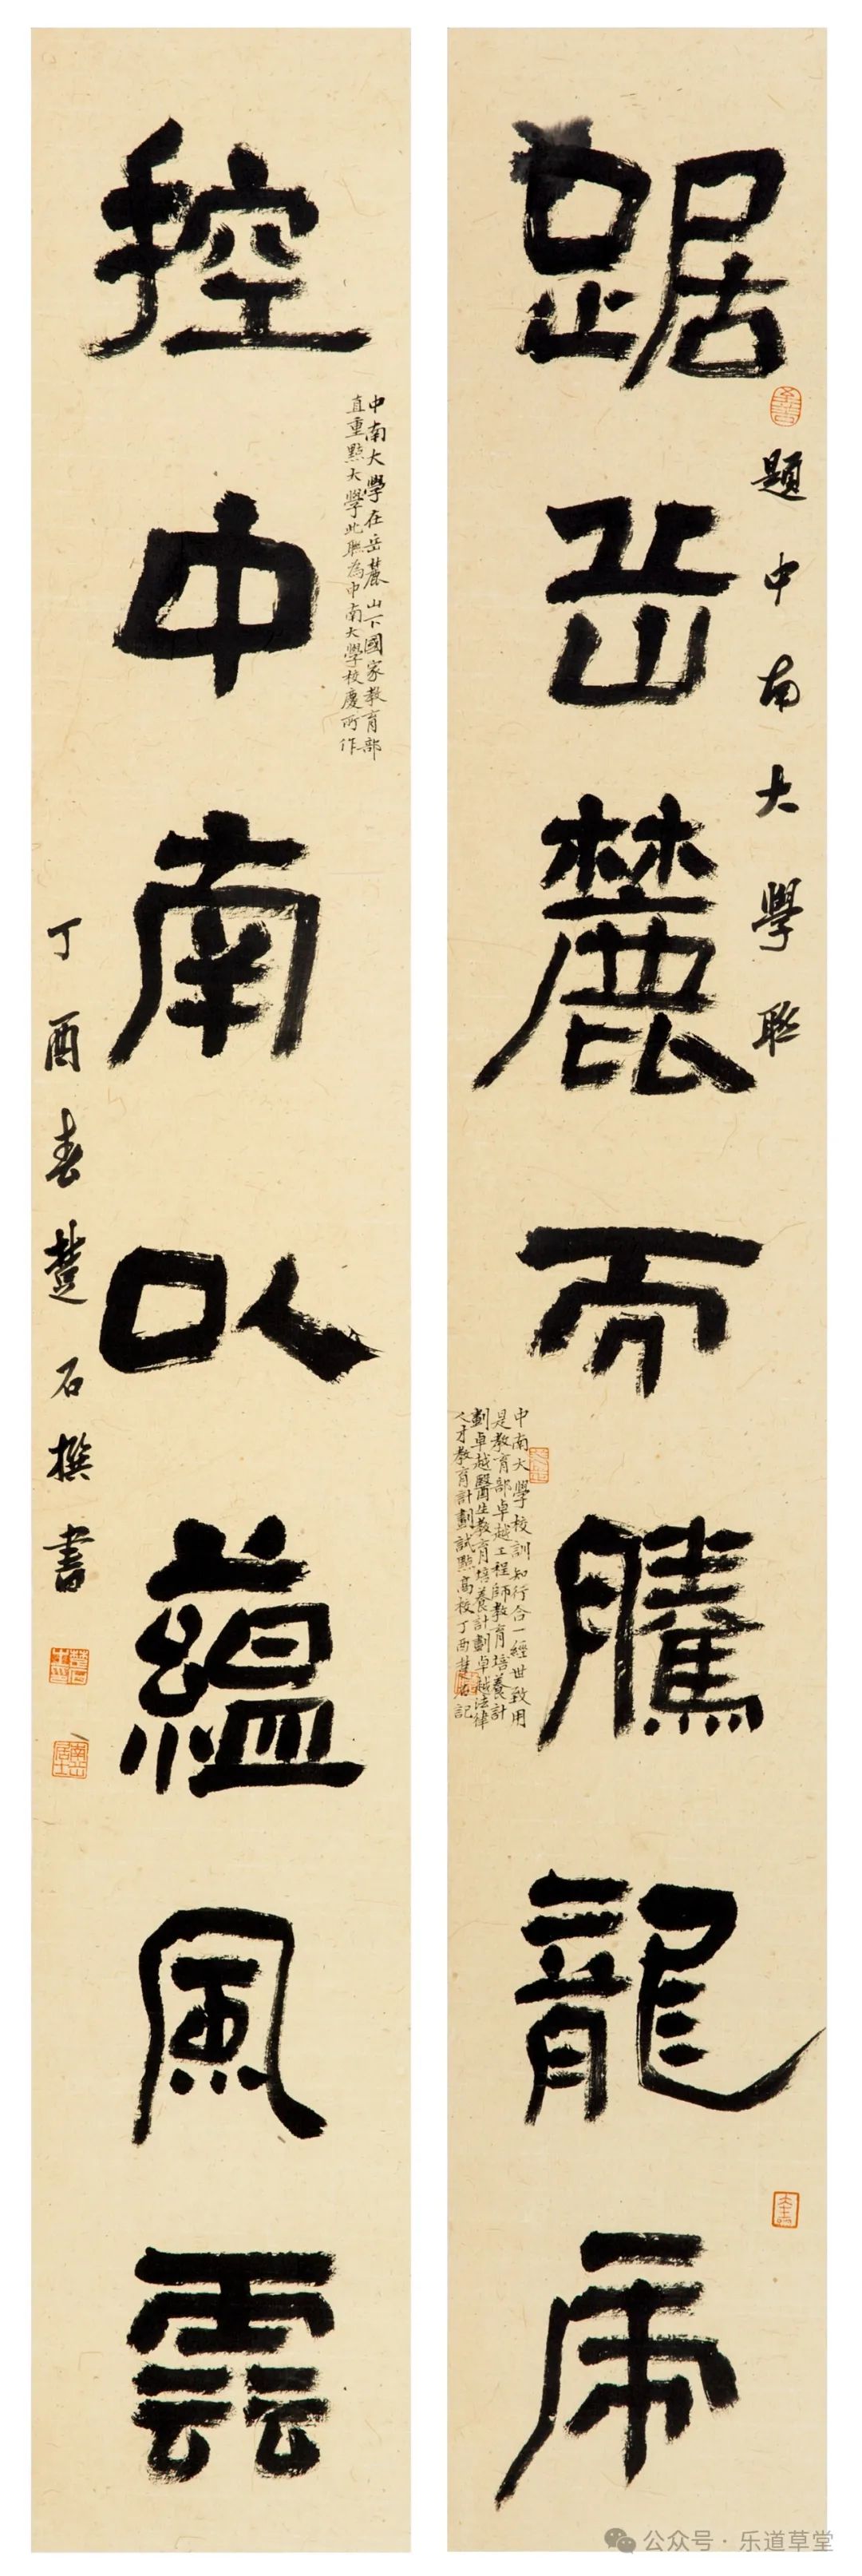 踞岳麓而騰龍虎
題中南大學聯
中南大學校訓知行合一經世致用
是教育部卓越工程師教育培養計
劃卓越醫生教育培養計劃卓越法律
人才教育計劃試點高校丁酉楚石記
控中南以蘊風雲
中南大學在岳麓山下國家教育部
直重點大學此聯為中南大學校慶所作
丁酉春楚石撰書
公众号·乐道草堂